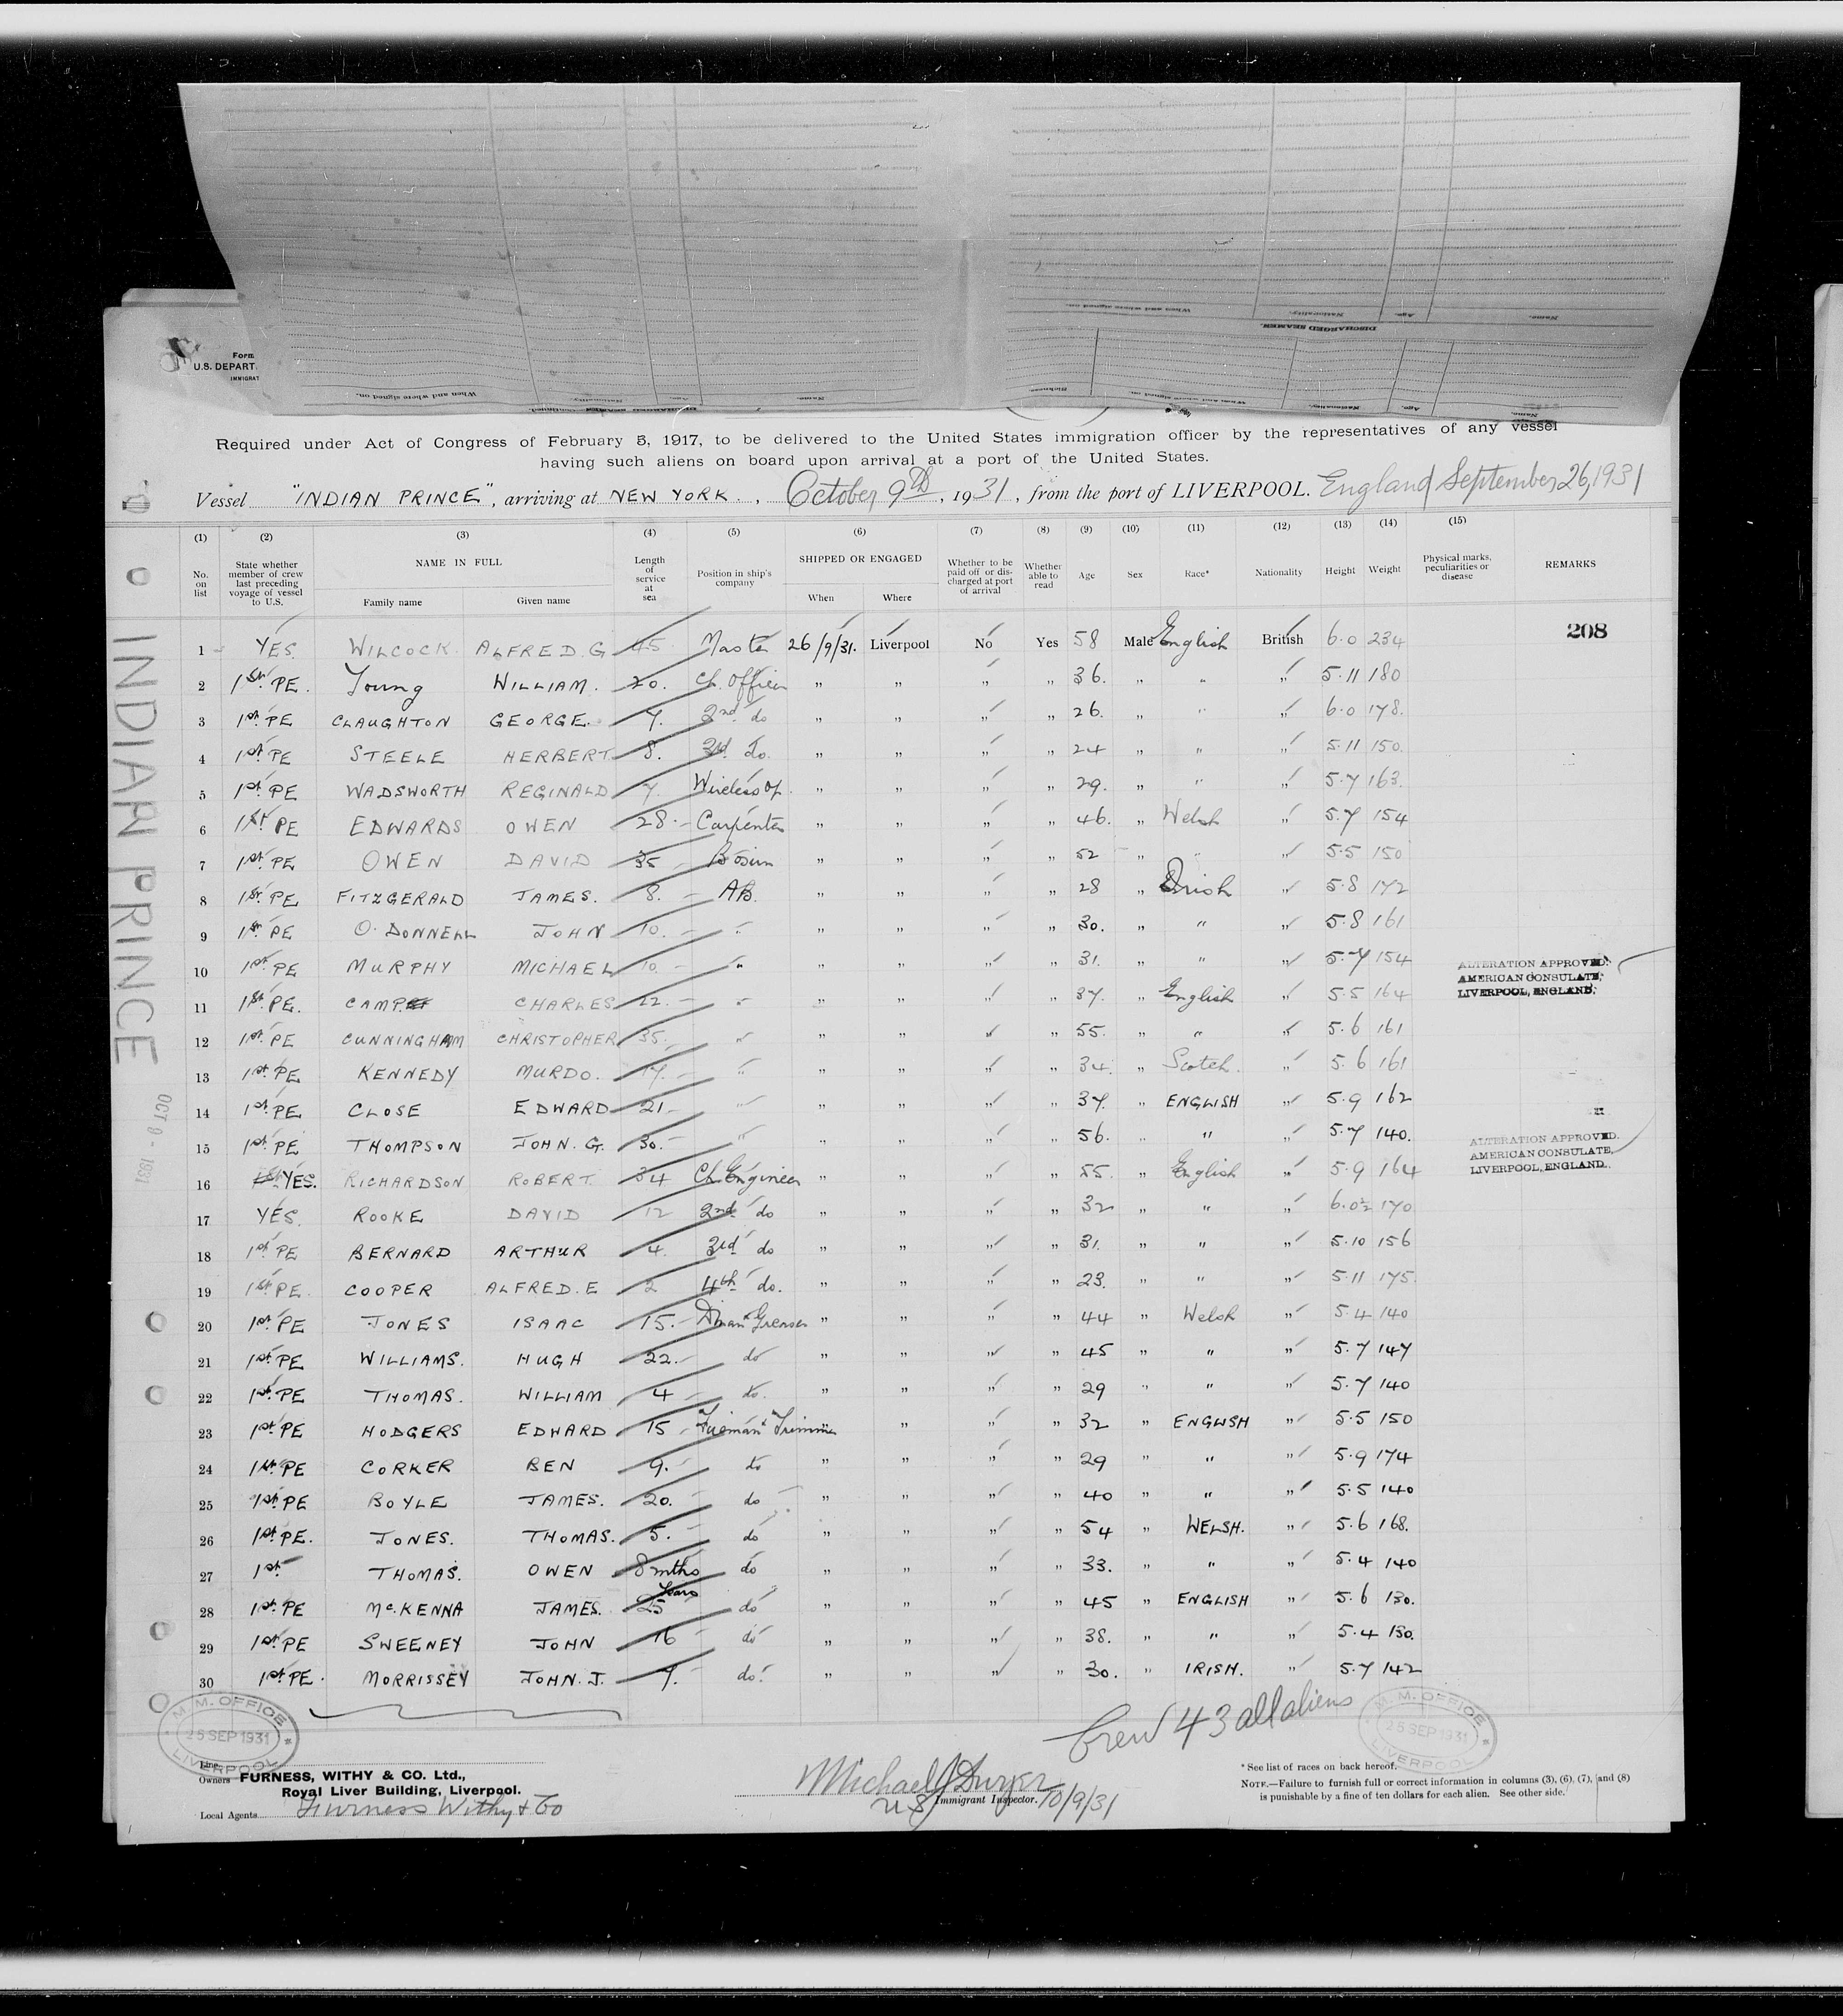 Form
U.S. DEPART
IMMIGRAT
When and where signed on.
Nationality.
Age.
Name.
DISCHARGED SEAMEN.
Required under Act of Congress of February 5, 1917, to be delivered to the United States immigration officer by the representatives of any vessel
having such aliens on board upon arrival at a port of the United States.
Vessel "INDIAN PRINCE", arriving at NEW YORK., October 9th, 1931, from the port of LIVERPOOL. England September 26, 1931
(1) (2) (3) (4) (5) (6) (7) (8) (9) (10) (11) (12) (13) (14) (15)
No. on list State whether member of crew last preceding voyage of vessel to U.S. NAME IN FULL Family name Given name Length of service at sea Position in ship's company SHIPPED OR ENGAGED When Where Whether to be paid off or discharged at port of arrival Whether able to read Age Sex Race* Nationality Height Weight Physical marks, peculiarities or disease REMARKS
208
1 YES. WILCOCK ALFRED.G 45 Master 26/9/31. Liverpool No Yes 58 Male English British 6.0 234
2 1st PE. Young WILLIAM. 20. Ch. Officer " " " " 36. " " " 5.11 180
3 1st PE CLAUGHTON GEORGE. 7. 2nd do " " " " 26. " " " 6.0 178.
4 1st PE STEELE HERBERT 8. 3rd do. " " " " 24 " " " 5.11 150.
5 1st PE WADSWORTH REGINALD 7. Wireless Op. " " " " 29. " " " 5.7 163.
6 1st PE EDWARDS OWEN 28. Carpenter " " " " 46. " Welsh " 5.7 154
7 1st PE OWEN DAVID 35 Bosun " " " " 52 " " " 5.5 150
8 1st PE FITZGERALD JAMES. 8. AB. " " " " 28 " Irish " 5.8 172
9 1st PE O.DONNELL JOHN 10. " " " " " 30. " " " 5.8 161
10 1st PE MURPHY MICHAEL 10. " " " " " 31. " " " 5.7 154
ALTERATION APPROVED.
AMERICAN CONSULATE,
LIVERPOOL, ENGLAND.
11 1st PE. CAMP CHARLES 22. " " " " " 37. " English " 5.5 164
12 1st PE CUNNINGHAM CHRISTOPHER 35. " " " " " 55. " " " 5.6 161
13 1st PE KENNEDY MURDO. 17. " " " " " 34. " Scotch. " 5.6 161
14 1st PE CLOSE EDWARD 21 " " " " " 37. " ENGLISH " 5.9 162
15 1st PE THOMPSON JOHN. G. 30. " " " " " 56. " " " 5.7 140.
ALTERATION APPROVED.
AMERICAN CONSULATE,
LIVERPOOL, ENGLAND.
16 YES. RICHARDSON ROBERT 34 Ch Engineer " " " " 55. " English " 5.9 164
17 YES. ROOKE DAVID 12 2nd do " " " " 32 " " " 6.0½ 170
18 1st PE BERNARD ARTHUR 4. 3rd do " " " " 31. " " " 5.10 156
19 1st PE. COOPER ALFRED.E 2 4th do. " " " " 23. " " " 5.11 175.
20 1st PE JONES ISAAC 15. Greaser " " " " 44 " Welsh " 5.4 140
21 1st PE WILLIAMS. HUGH 22. do " " " " 45 " " " 5.7 147
22 1st PE THOMAS. WILLIAM 4 do. " " " " 29 " " " 5.7 140
23 1st PE HODGERS EDWARD 15 Fireman & Trimmer " " " 32 " ENGLISH " 5.5 150
24 1st PE CORKER BEN 9. do " " " " 29 " " " 5.9 174
25 1st PE BOYLE JAMES. 20. do " " " " 40 " " " 5.5 140
26 1st PE. JONES. THOMAS. 5. do " " " " 54 " WELSH. " 5.6 168.
27 1st THOMAS. OWEN 8 mths do " " " " 33. " " " 5.4 140
28 1st PE McKENNA JAMES. 25 Years do " " " " 45 " ENGLISH " 5.6 130.
29 1st PE SWEENEY JOHN 16 do " " " " 38. " " " 5.4 130.
30 1st PE. MORRISSEY JOHN. J. 7. do. " " " " 30. " IRISH. " 5.7 142
INDIAN PRINCE
OCT 9 - 1931
Crew 43 all aliens
M.M. OFFICE
25 SEP 1931
LIVERPOOL
M.M. OFFICE
25 SEP 1931
LIVERPOOL
Line
Owners FURNESS, WITHY & CO. Ltd.,
Royal Liver Building, Liverpool.
Local Agents Furness Withy & Co
Michael J
US Immigrant Inspector. 10/9/31
* See list of races on back hereof.
NOTE.—Failure to furnish full or correct information in columns (3), (6), (7), and (8)
is punishable by a fine of ten dollars for each alien. See other side.